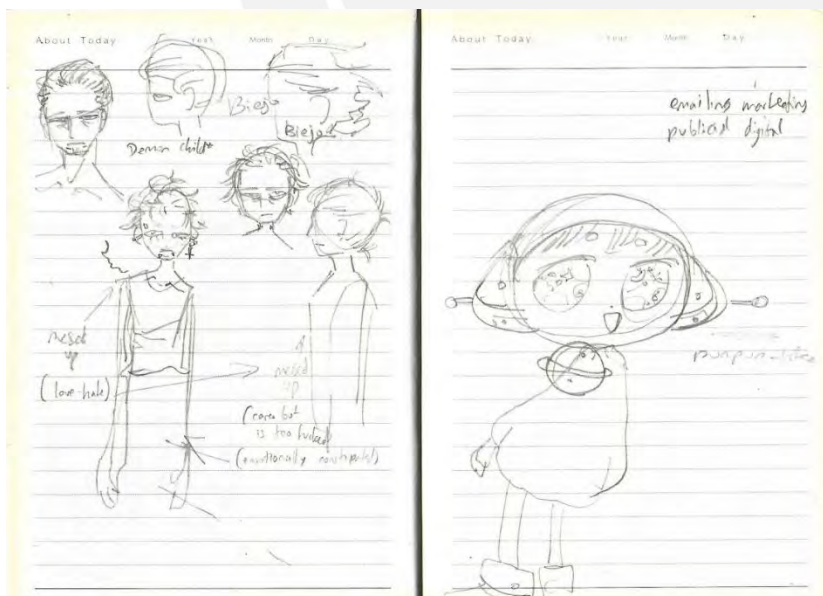 About Today Year Month Day
Biejo
Biejo
Demon child
mesed
up
(love-hate)
mesed
up
(cares but
is too
(emotionally constipated)
About Today Year Month Day
emailing marketing
publicidad digital